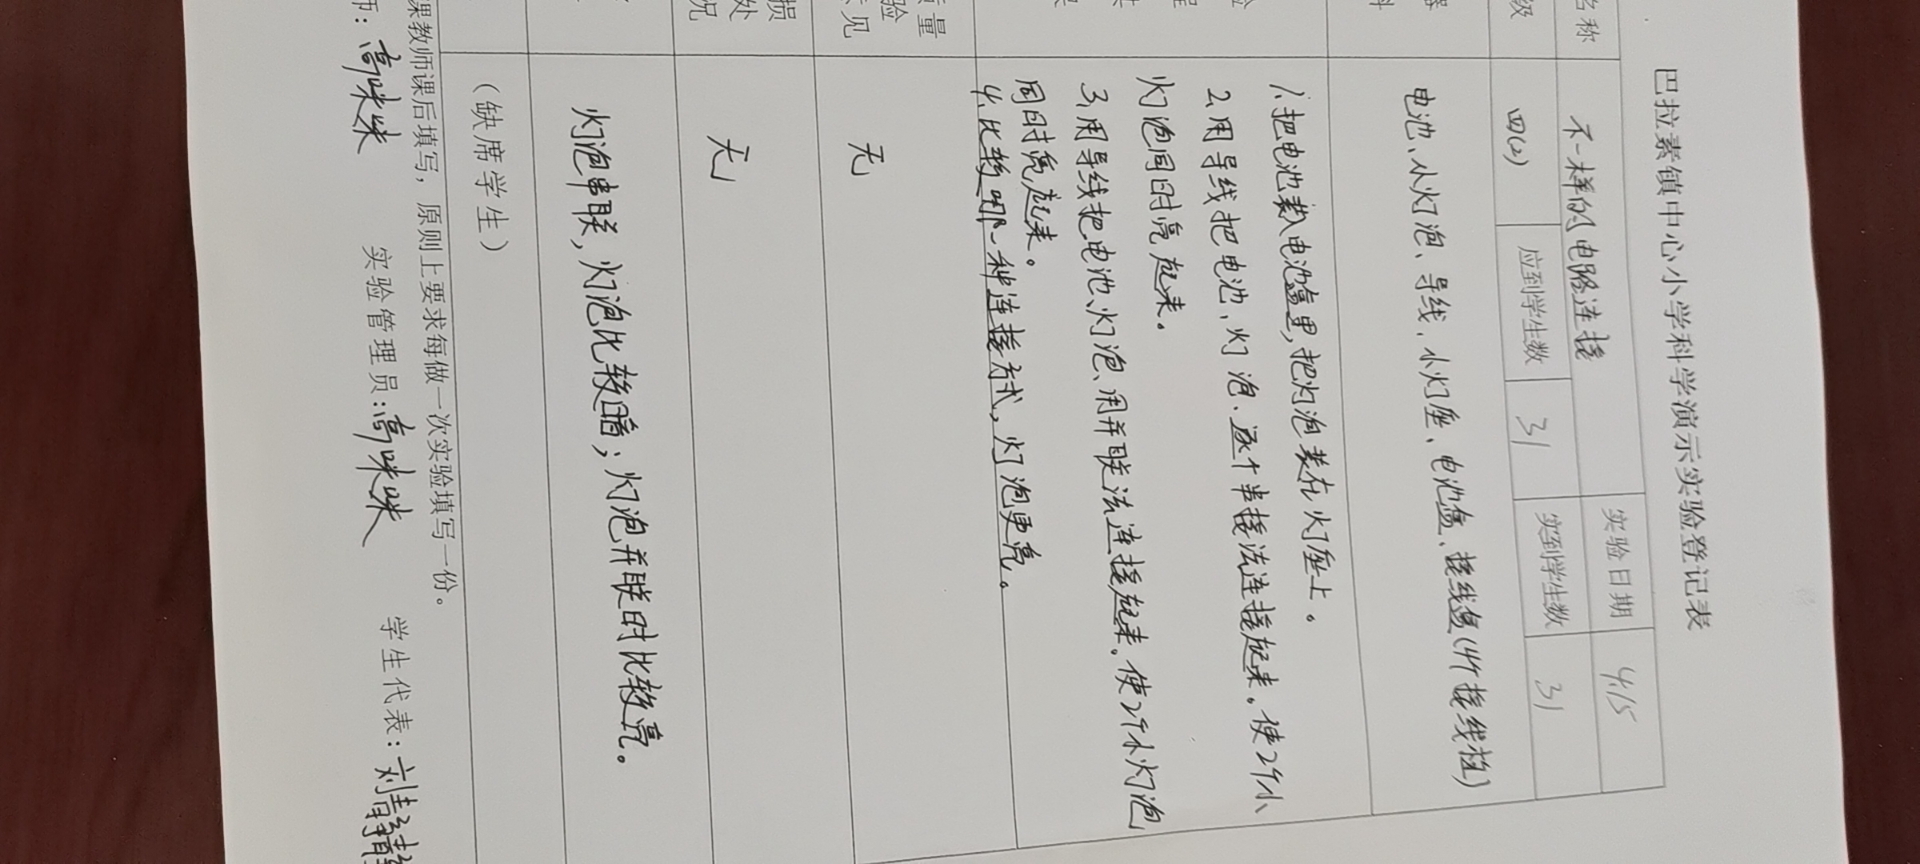 巴拉素镇中心小学科学演示实验登记表
名称 不一样的电路连接 实验日期 4.15
级 四(2) 应到学生数 31 实到学生数 31
器 电池、小灯泡、导线、小灯座、电池盒、接线盒(4个接线柱)
料
1.把电池装入电池盒里,把灯泡装在灯座上。
2.用导线把电池、灯泡、逐个串接法连接起来。使2个小
灯泡同时亮起来。
3.用导线把电池、灯泡、用并联法连接起来。使2个小灯泡
同时亮起来。
4.比较哪一种连接方式,灯泡更亮。
质量
验
意见 无
损
处
况 无
灯泡串联,灯泡比较暗;灯泡并联时比较亮。
(缺席学生)
课教师课后填写,原则上要求每做一次实验填写一份。
师:高咪咪 实验管理员:高咪咪 学生代表:刘